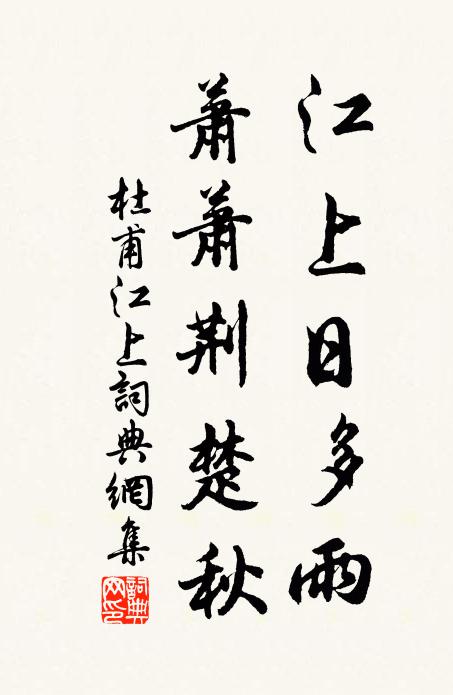 江上日多雨
蕭蕭荆楚秋
杜甫江上詞典網集
詞典
网印